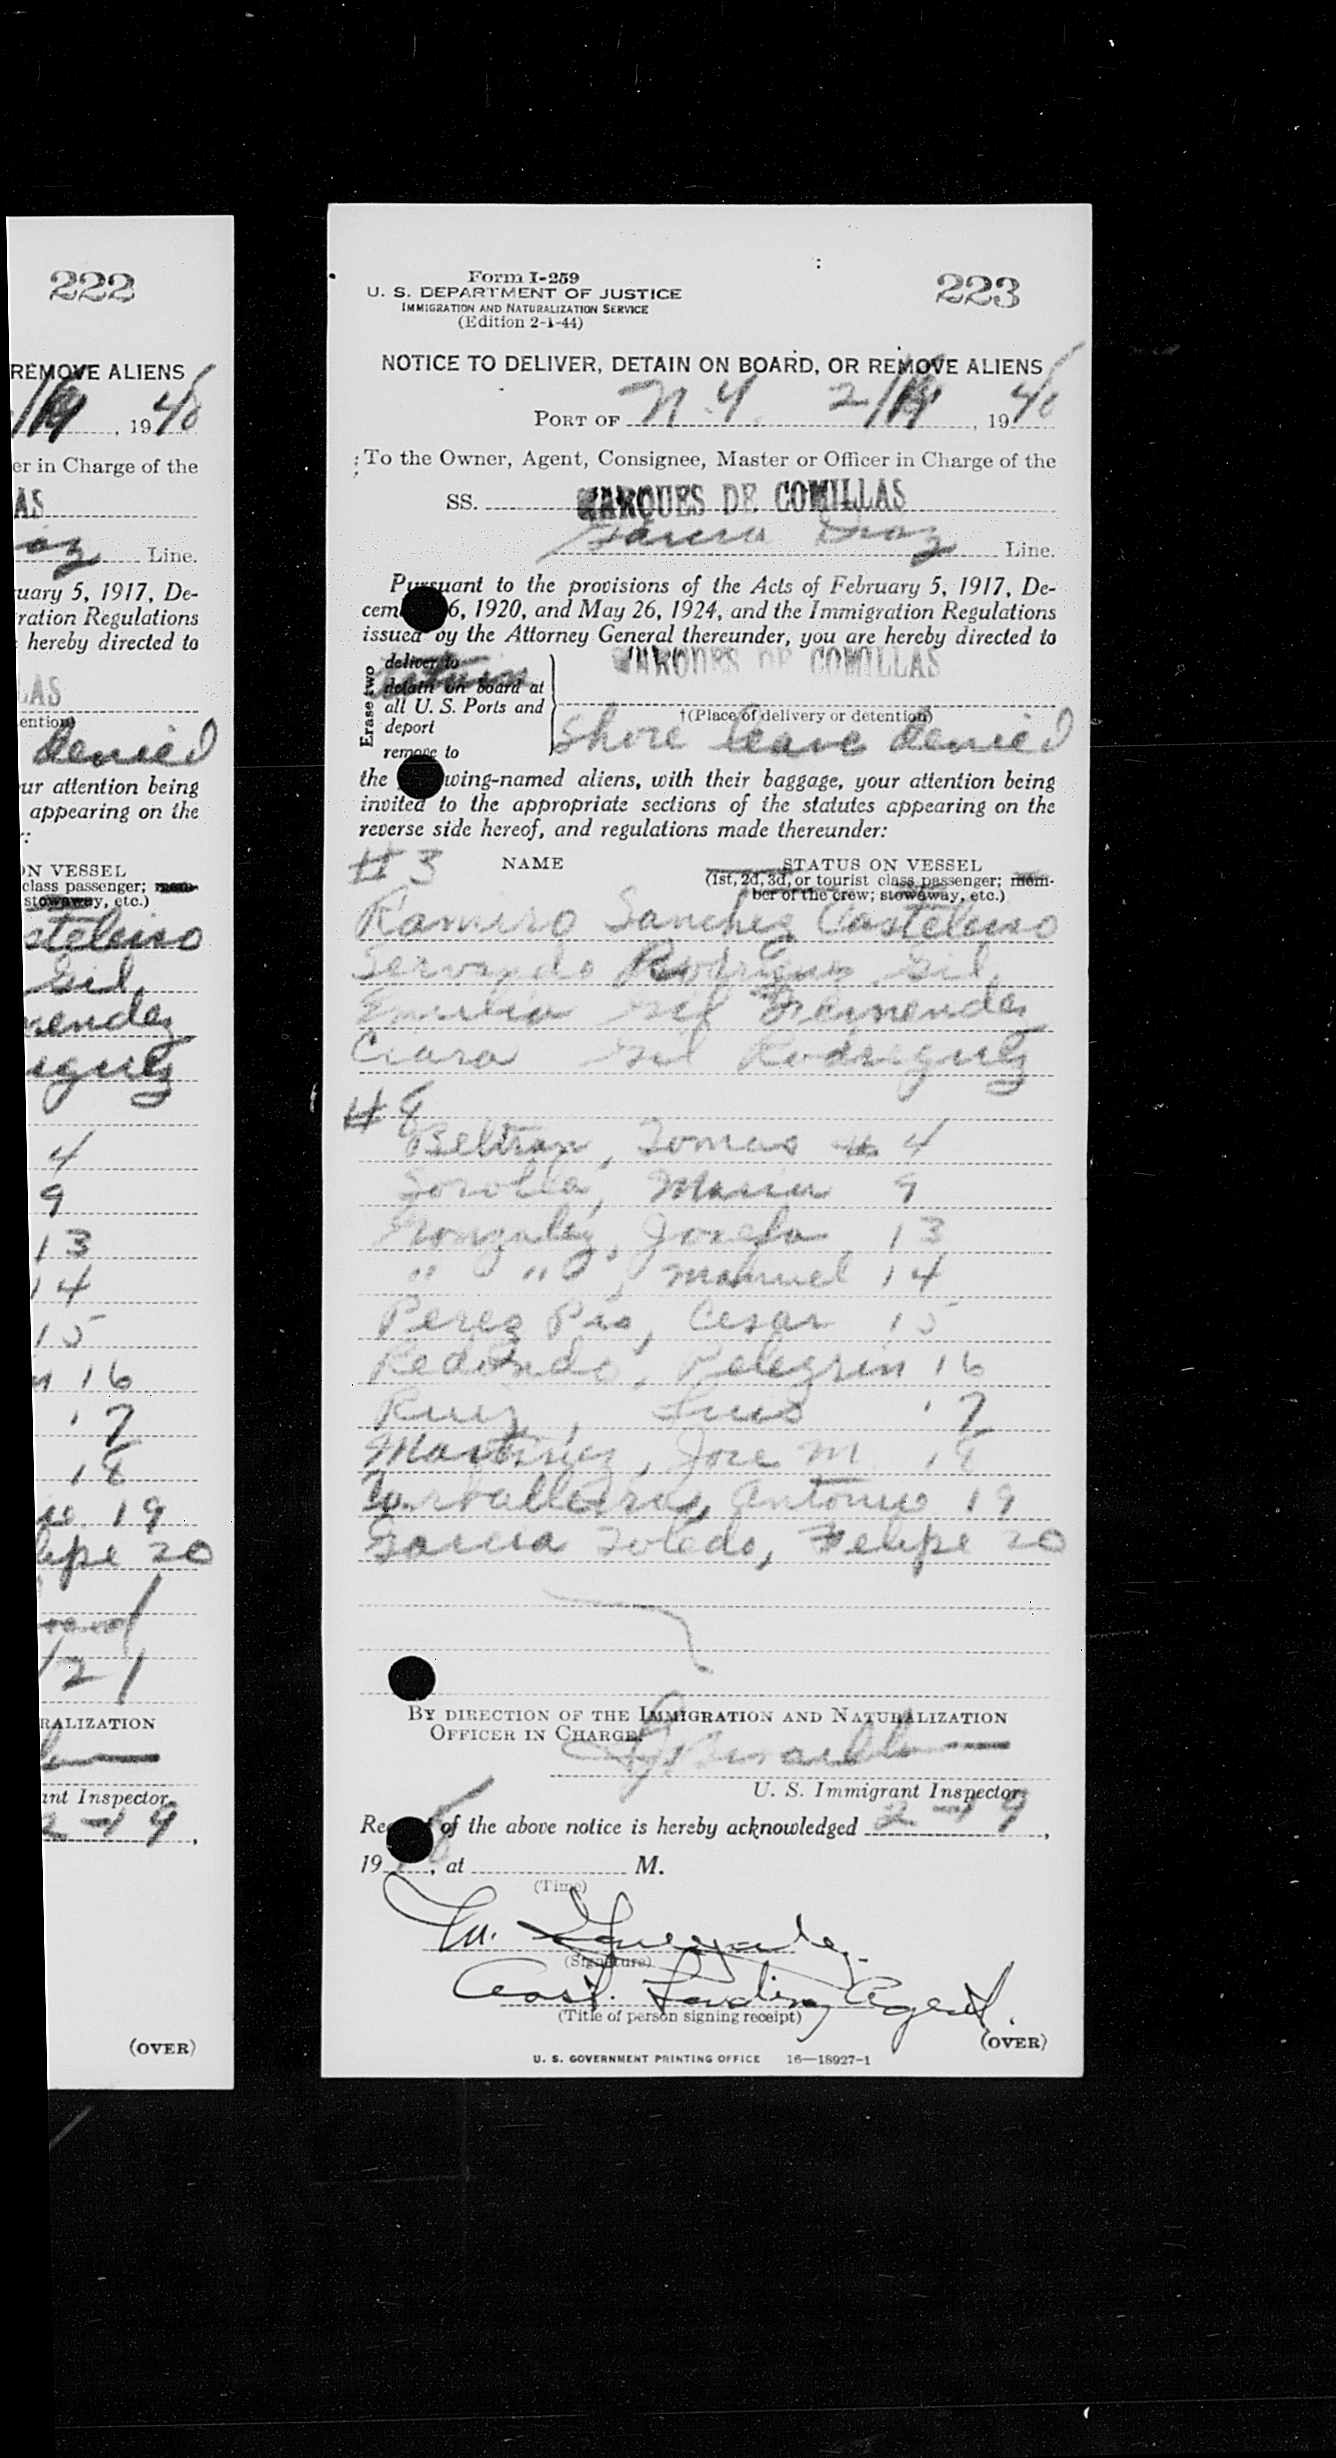 222
REMOVE ALIENS
, 19
er in Charge of the
AS
Line.
uary 5, 1917, De-
ration Regulations
hereby directed to
LAS
ention)
denied
ur attention being
appearing on the
:
ON VESSEL
class passenger; mem-
stowaway, etc.)
Gil
4
9
13
14
15
16
17
18
19
lipe 20
21
RALIZATION
ant Inspector
2-19,
(OVER)
Form I-259
U. S. DEPARTMENT OF JUSTICE
IMMIGRATION AND NATURALIZATION SERVICE
(Edition 2-1-44)
223
NOTICE TO DELIVER, DETAIN ON BOARD, OR REMOVE ALIENS
PORT OF N.Y. 2/19, 1946
To the Owner, Agent, Consignee, Master or Officer in Charge of the
SS. MARQUES DE COMILLAS
Garcia Diaz Line.
Pursuant to the provisions of the Acts of February 5, 1917, De-
cem 6, 1920, and May 26, 1924, and the Immigration Regulations
issued by the Attorney General thereunder, you are hereby directed to
Erase two
deliver to
detain on board at
all U. S. Ports and
deport
remove to
MARQUES DE COMILLAS
†(Place of delivery or detention)
Shore leave denied
the wing-named aliens, with their baggage, your attention being
invited to the appropriate sections of the statutes appearing on the
reverse side hereof, and regulations made thereunder:
#3 NAME STATUS ON VESSEL
(1st, 2d, 3d, or tourist class passenger; mem-
ber of the crew; stowaway, etc.)
Ramiro Sanchez Casteleiro
Servando Rodriguez Gil
Emilia Gil Fernendez
Clara Gil Rodriguez
#8
Beltran, Tomas 4
Sorolla, Maria 9
Gonzalez, Josefa 13
" " , Manuel 14
Perez Pis, Cesar 15
Redondo, Pelegrin 16
Ruiz, Luis 17
Martinez, Jose M 18
Carballeira, Antonio 19
Garcia Toledo, Felipe 20
BY DIRECTION OF THE IMMIGRATION AND NATURALIZATION
OFFICER IN CHARGE.
U. S. Immigrant Inspector.
Re of the above notice is hereby acknowledged 2-19,
19 6, at M.
(Time)
M. Gonzalez
(Signature)
Asst. Landing Agent.
(Title of person signing receipt)
(OVER)
U. S. GOVERNMENT PRINTING OFFICE 16—18927-1